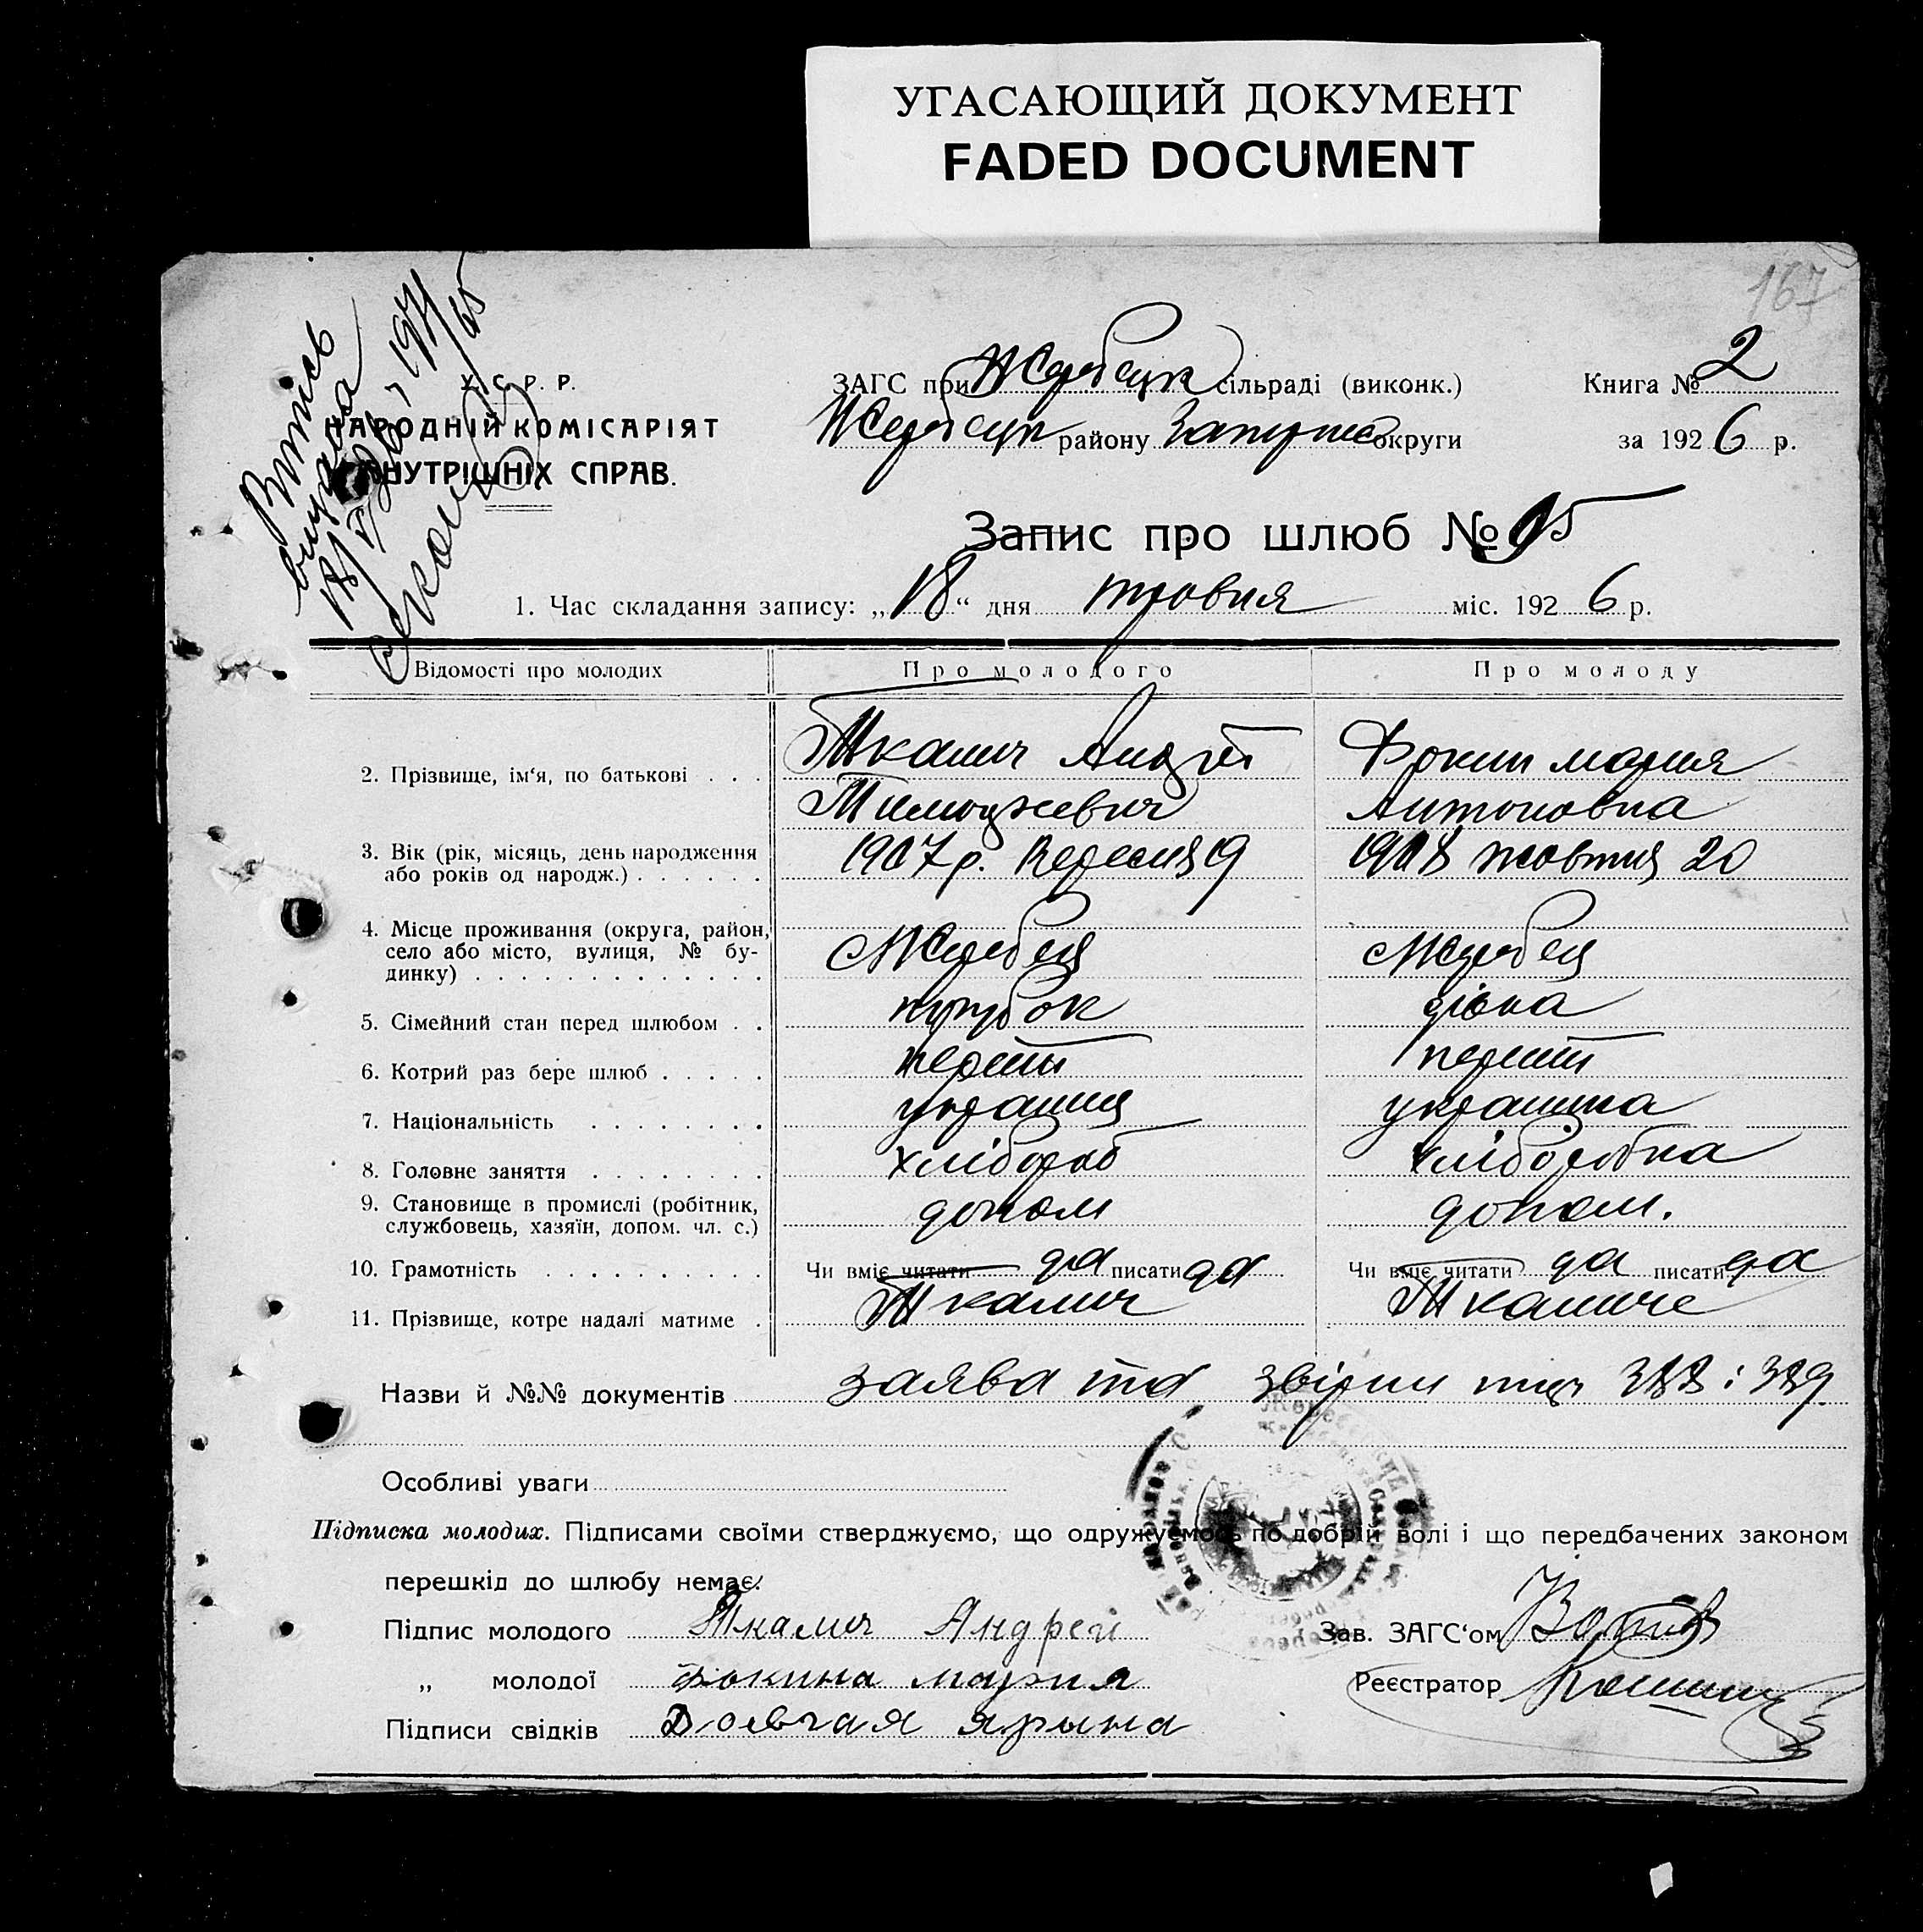 УГАСАЮЩИЙ ДОКУМЕНТ
FADED DOCUMENT
167
Витяг
У. С. Р. Р.
НАРОДНІЙ КОМІСАРІЯТ
ВНУТРІШНІХ СПРАВ.
ЗАГС при Жеребецьк сільраді (виконк.) Книга № 2
Жеребецьк району Запоріж округи за 1926 р.
Запис про шлюб № 95
1. Час складання запису: „18“ дня травня міс. 1926 р.
Відомості про молодих Про молодого Про молоду
2. Прізвище, ім‘я, по батькові Ткалич Андрій Фокин Мария
Тимофжевич Антоновна
3. Вік (рік, місяць, день народження 1907 р. Вересня 19 1908 жовтня 20
або років од народж.)
4. Місце проживання (округа, район,
село або місто, вулиця, № бу- Жеребец Жеребец
динку)
5. Сімейний стан перед шлюбом парубок дівка
6. Котрий раз бере шлюб перший перший
7. Національність украинец украинка
8. Головне заняття хлібороб хліборобка
9. Становище в промислі (робітник, допом допом.
службовець, хазяїн, допом. чл. с.)
10. Грамотність Чи вміє читати да писати да Чи вміє читати да писати да
11. Прізвище, котре надалі матиме Ткалич Ткаличе
Назви й №№ документів заява та 388 і 389
Особливі уваги
Підписка молодих. Підписами своїми стверджуємо, що одружуємось по добрій волі і що передбачених законом
перешкід до шлюбу немає.
Підпис молодого Ткалич Андрей Зав. ЗАГС‘ом
„ молодої Фокина мария Реєстратор
Підписи свідків ярына